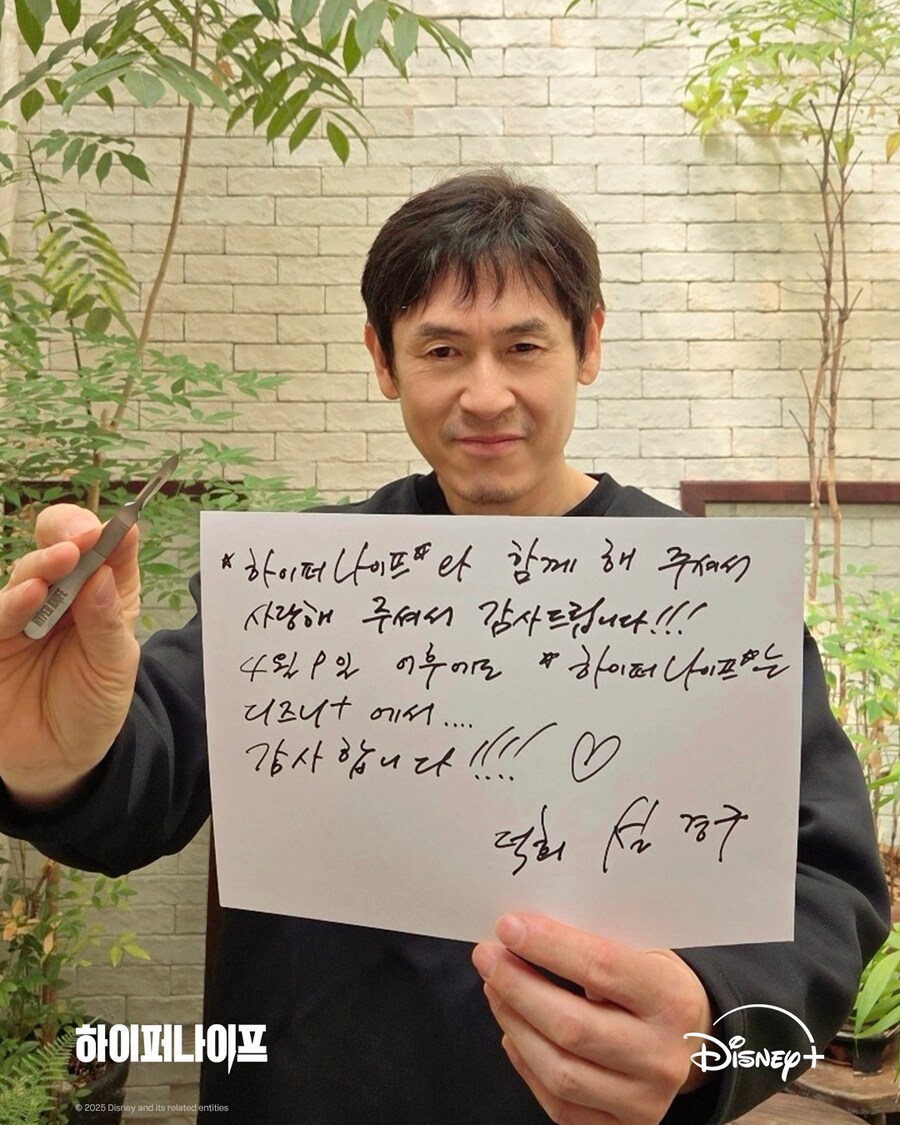 *하이퍼나이프*와 함께 해 주셔서
사랑해 주셔서 감사드립니다!!!
4월 9일 이후에도 *하이퍼나이프*는
디즈니+ 에서....
감사합니다!!!! ♡
덕희 설경구
HYPER KNIFE
하이퍼나이프
Disney+
© 2025 Disney and its related entities